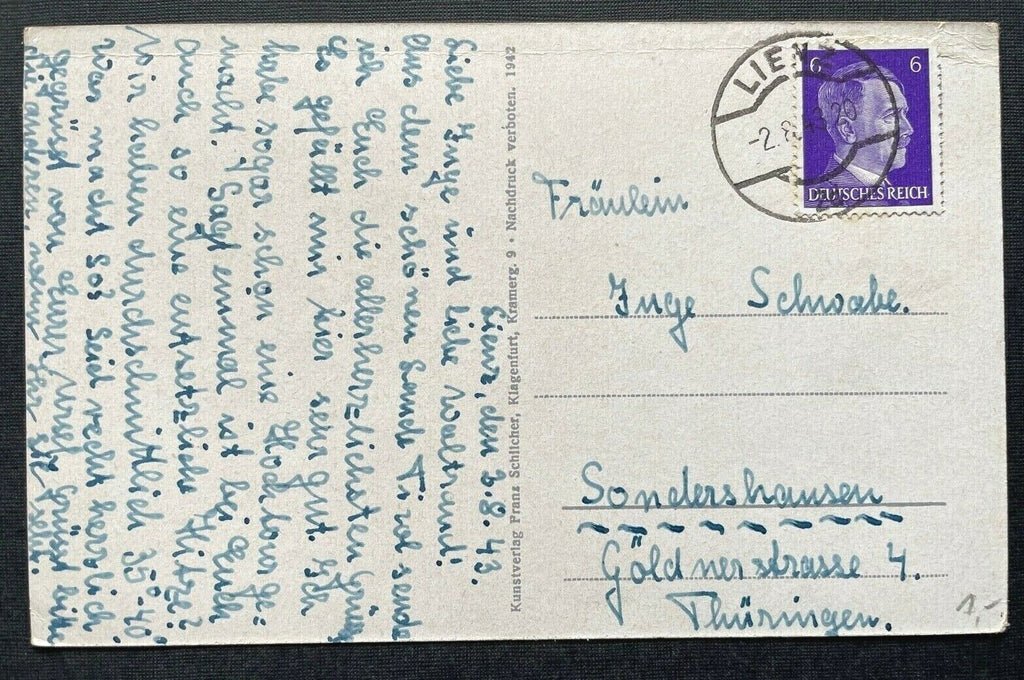 Lienz, den 2.8.43.
Liebe Inge und liebe Waltraut!
Aus dem schönen Lande Tirol sende
ich Euch die allerherzlichsten Grüße
Es gefällt mir hier sehr gut. Ich
habe sogar schon eine Hochtour ge-
macht. Sagt einmal ist bei Euch
auch so eine entsetzliche Hitze?
Wir haben durchschnittlich 35-40°
Was macht Seid recht herzlich
gegrüsst von Eurer Grüsst bitte
die anderen
Kunstverlag Franz Schlicher, Klagenfurt, Kramerg. 9 • Nachdruck verboten. 1942
LIENZ
-2.8.43.20
6 6
DEUTSCHES REICH
Fräulein
Inge Schwabe.
Sondershausen
Göldnerstrasse 4.
Thüringen.
1,-